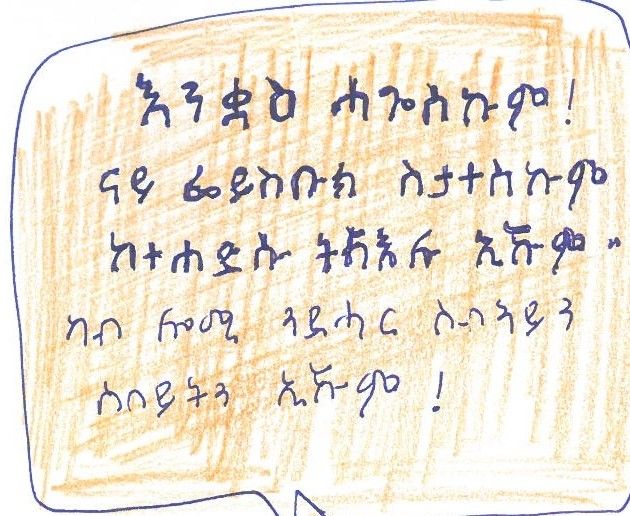 እንቋዕ ሓጎስኩም!
ናይ ፌይስቡክ ስታተስኩም
ከተሐድሱ ትኽእሉ ኢኹም"
ካብ ሎሚ ንደሓር ሱብኣይን
ሰበይትን ኢኹም!